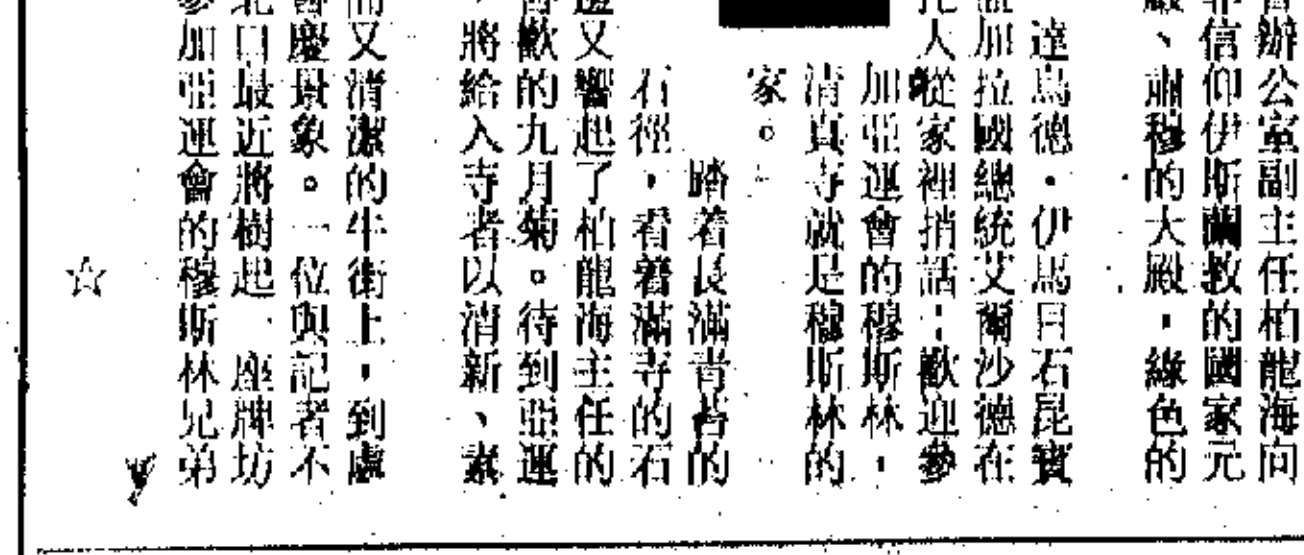 辦公室副主任柏龍海向
信仰伊斯蘭教的國家元
、肅穆的大殿,綠色的
達烏德・伊馬目石昆賓
加拉國總統艾爾沙德在
人從家裡捎話:歡迎參
加亞運會的穆斯林,
清真寺就是穆斯林的
家。
踏着長滿青苔的
石徑,看着滿寺的石
又響起了柏龍海主任的
歡的九月菊。待到亞運
,將給入寺者以清新、素
又清潔的牛街上,到處
慶景象。一位與記者不
口最近將樹起一座牌坊
加亞運會的穆斯林兄弟
☆